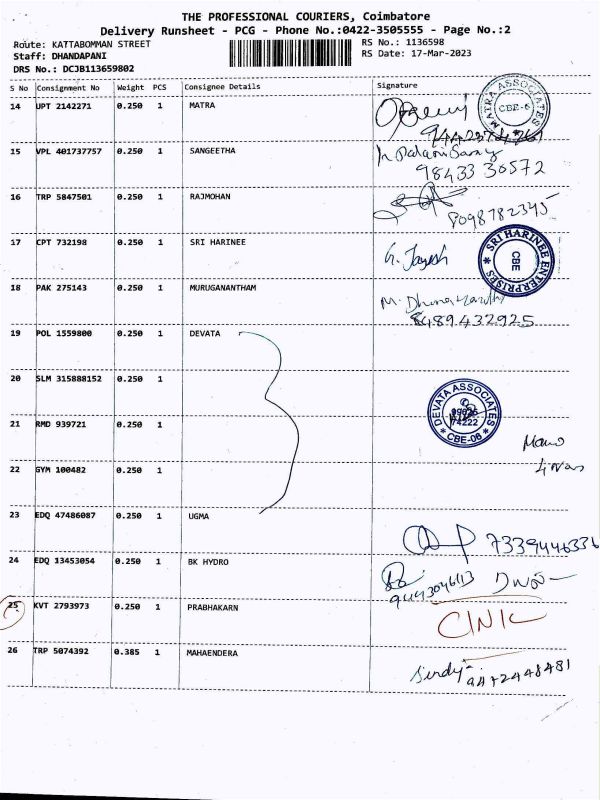 THE PROFESSIONAL COURIERS, Coimbatore
Delivery Runsheet - PCG - Phone No.:0422-3505555 - Page No.:2
Route: KATTABOMMAN STREET
RS No.: 1136598
Staff: DHANDAPANI
RS Date: 17-Mar-2023
DRS No.: DCJB113659802
S No Consignment No Weight PCS Consignee Details Signature
14 UPT 2142271 0.250 1 MATRA
MATRA ASSOCIATES CBE-6
15 VPL 401737757 0.250 1 SANGEETHA
98433 30572
16 TRP 5847501 0.250 1 RAJMOHAN
8098782345
17 CPT 732198 0.250 1 SRI HARINEE G. Jayesh
* SRI HARINEE ENTERPRISES * CBE
18 PAK 275143 0.250 1 MURUGANANTHAM
8489432925
19 POL 1559800 0.250 1 DEVATA
20 SLM 315888152 0.250 1
DEVATA ASSOCIATES
74222
* CBE-06 *
21 RMD 939721 0.250 1
22 GYM 100482 0.250 1
23 EDQ 47486087 0.250 1 UGMA
7339446336
24 EDQ 13453054 0.250 1 BK HYDRO
25 KVT 2793973 0.250 1 PRABHAKARN
26 TRP 5074392 0.385 1 MAHAENDERA
9442448481